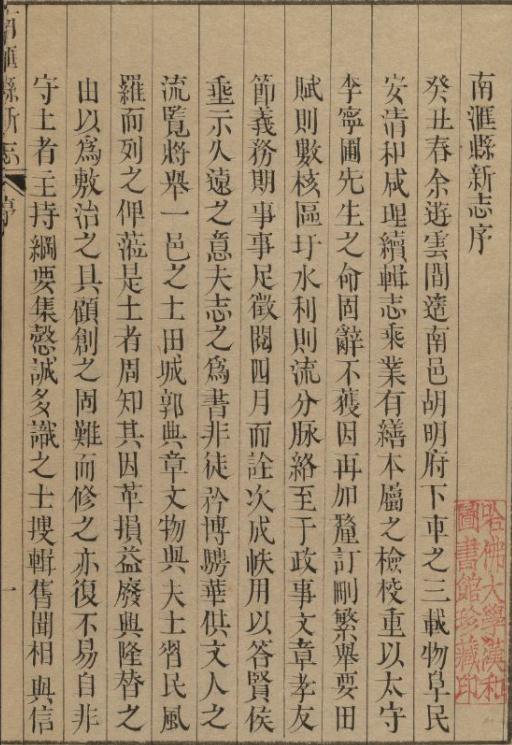 南滙縣新志序
癸丑春余遊雲間適南邑胡明府下車之三載物阜民
安清和咸理續輯志乘業有繕本屬之檢校重以太守
李寧圃先生之命固辭不獲因再加釐訂刪繁舉要田
賦則數核區圩水利則流分脉絡至于政事文章孝友
節義務期事事足徵閱四月而詮次成帙用以答賢侯
垂示久遠之意夫志之爲書非徒矜博騁華供文人之
流覽將舉一邑之土田城郭典章文物與夫士習民風
羅而列之俾蒞是土者周知其因革損益廢興隆替之
由以爲敷治之具顧創之固難而修之亦復不易自非
守土者主持綱要集慤誠多識之士搜輯舊聞相與信
南滙縣新志
序
一
哈佛大學漢和
圖書館珍藏印